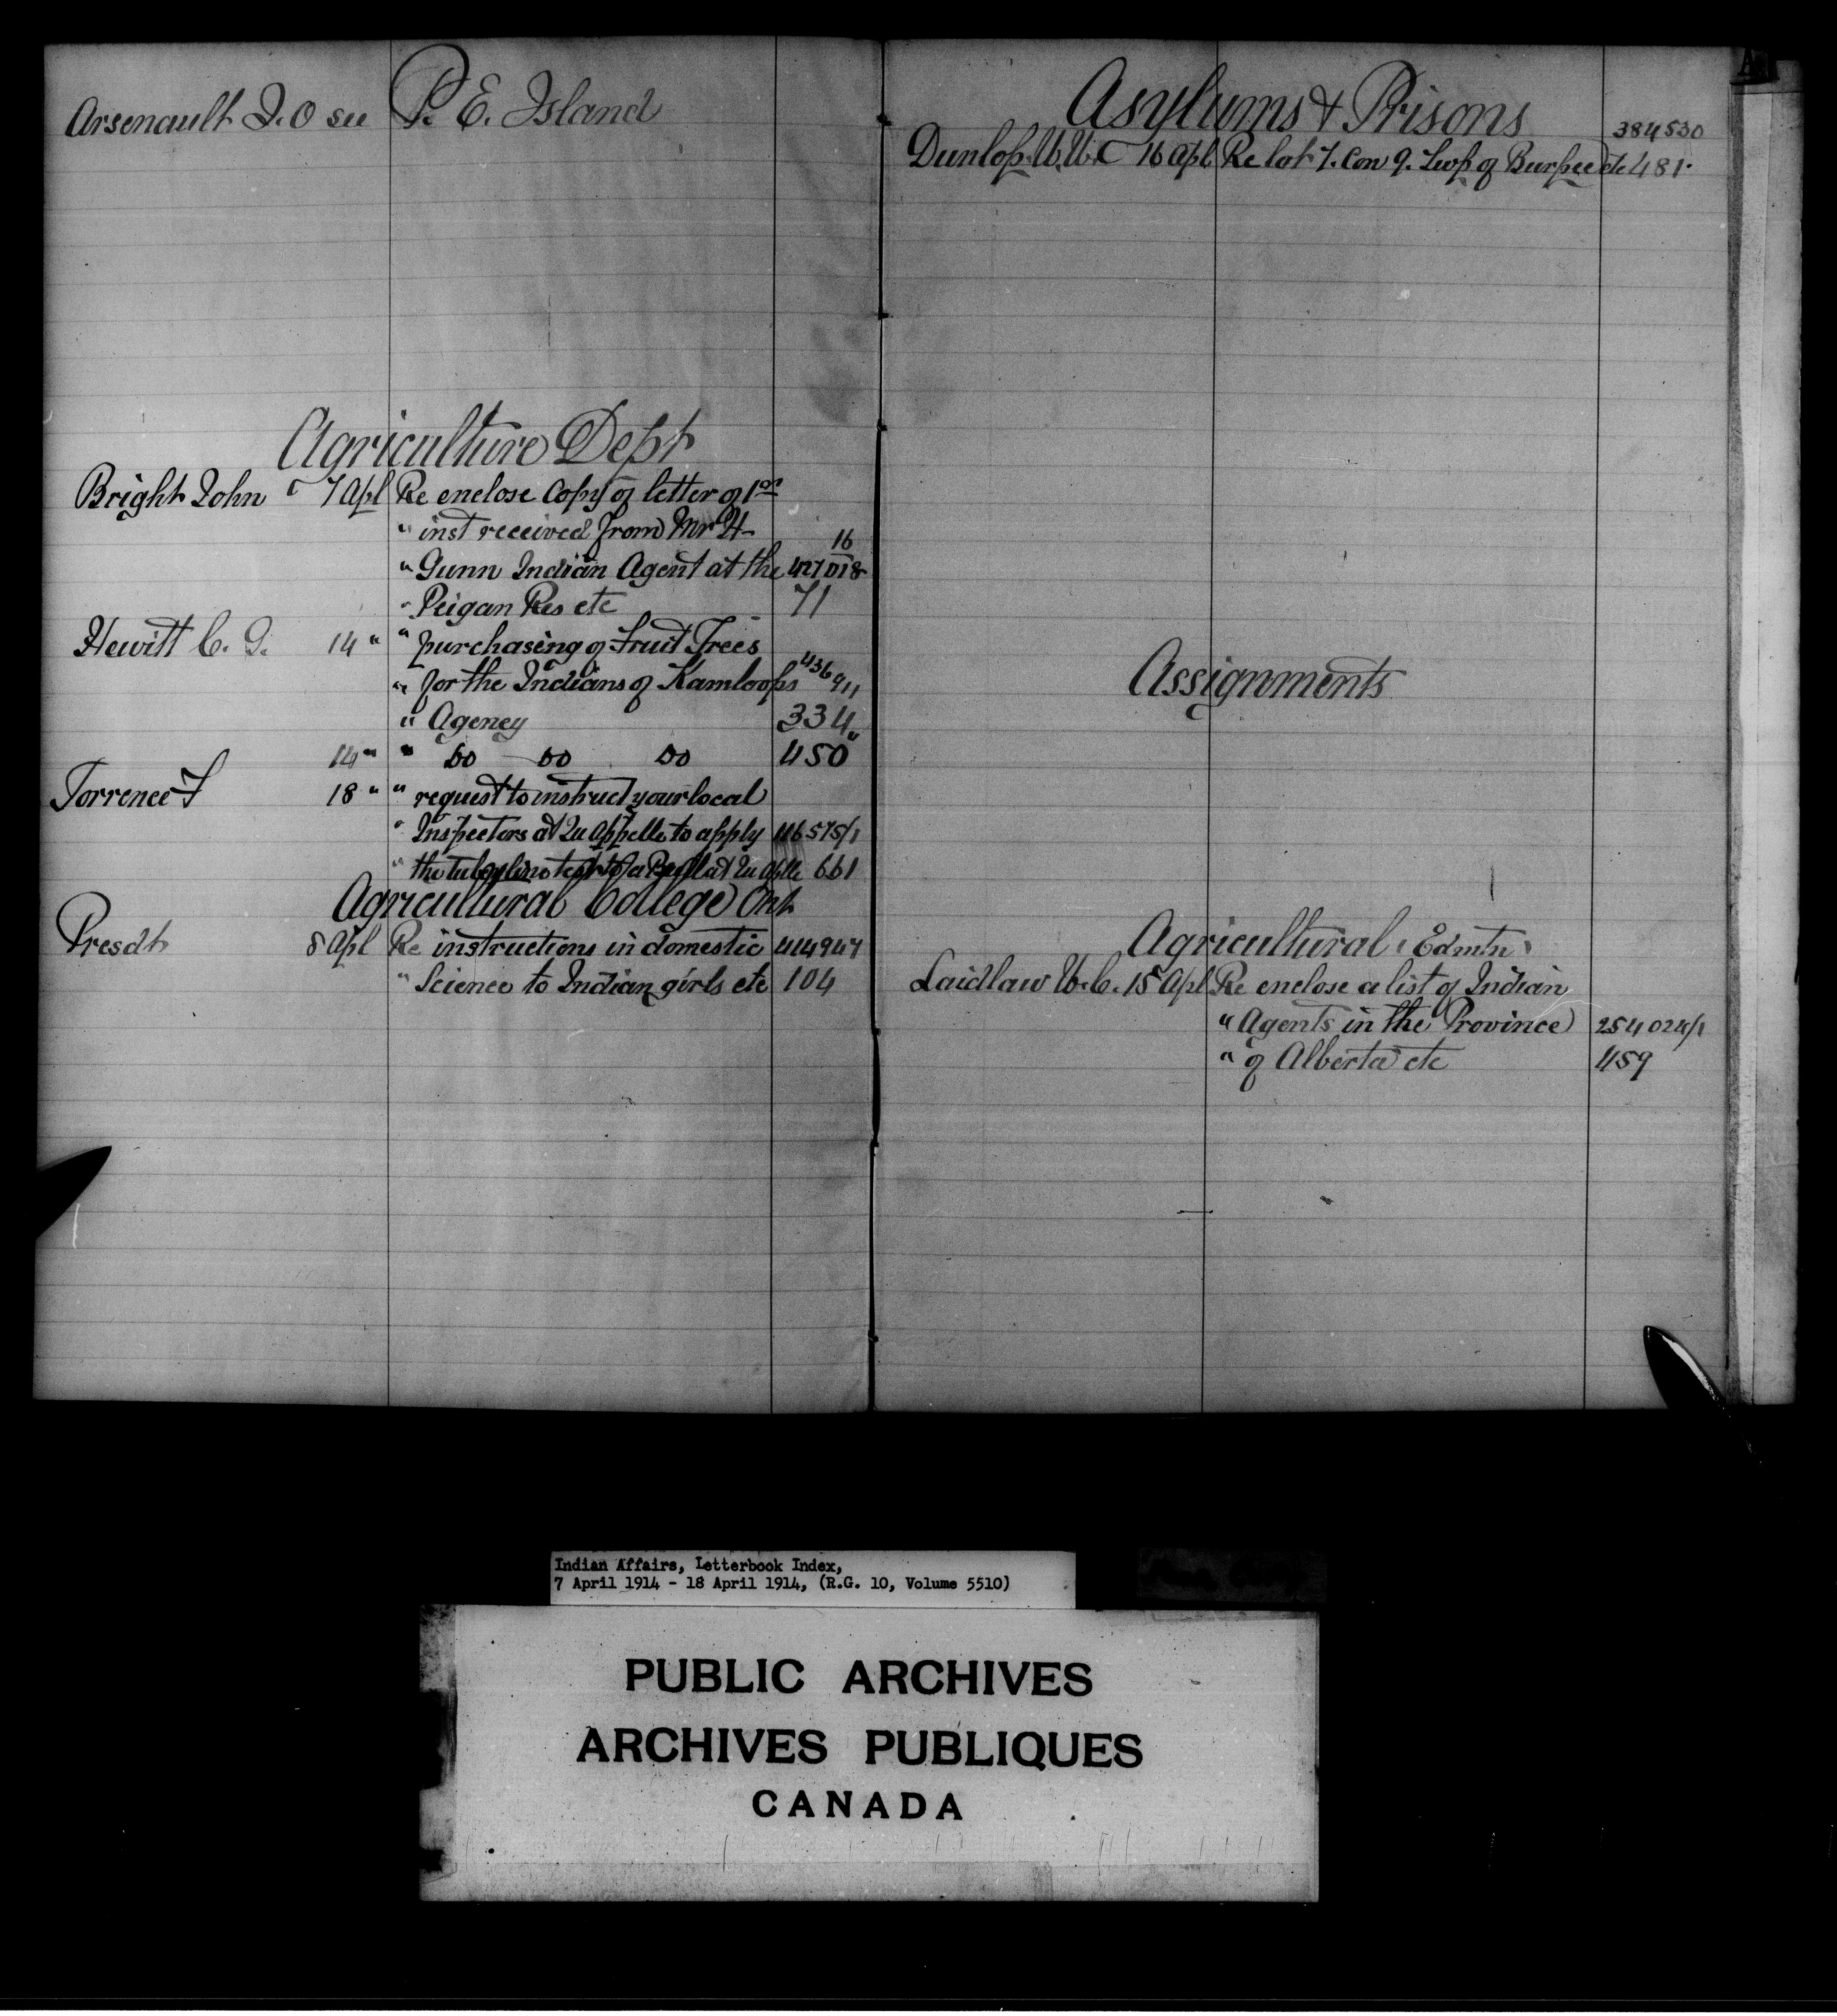 Arsenault J. O see P. E. Island
Agriculture Dept
Bright John 7 Apl Re enclose Copy of letter of 1st
" inst received from Mr H 16
" Gunn Indian Agent at the 427018
" Peigan Res etc 71
Hewitt C. G. 14 " " purchasing of Fruit Trees
" for the Indians of Kamloops 436911
" Agency 334
14 " " Do Do Do 450
Torrence F 18 " " request to instruct your local
" Inspectors at Qu Appelle to apply 416575/1
" the tuberline test to a Bull at Qu Aplle 661
Agricultural College Ont
Presdt 8 Apl Re instructions in domestic 414947
" Science to Indian girls etc 104
Asylums & Prisons
384530
Dunlop 16 Apl Re lot 7. Con 9. Twp of Burpee etc 481.
Assignments
Agricultural Edmtn
Laidlaw W. C. 15 Apl Re enclose a list of Indian
" Agents in the Province 254024/1
" of Alberta etc 459
A
Indian Affairs, Letterbook Index,
7 April 1914 - 18 April 1914, (R.G. 10, Volume 5510)
PUBLIC ARCHIVES
ARCHIVES PUBLIQUES
CANADA